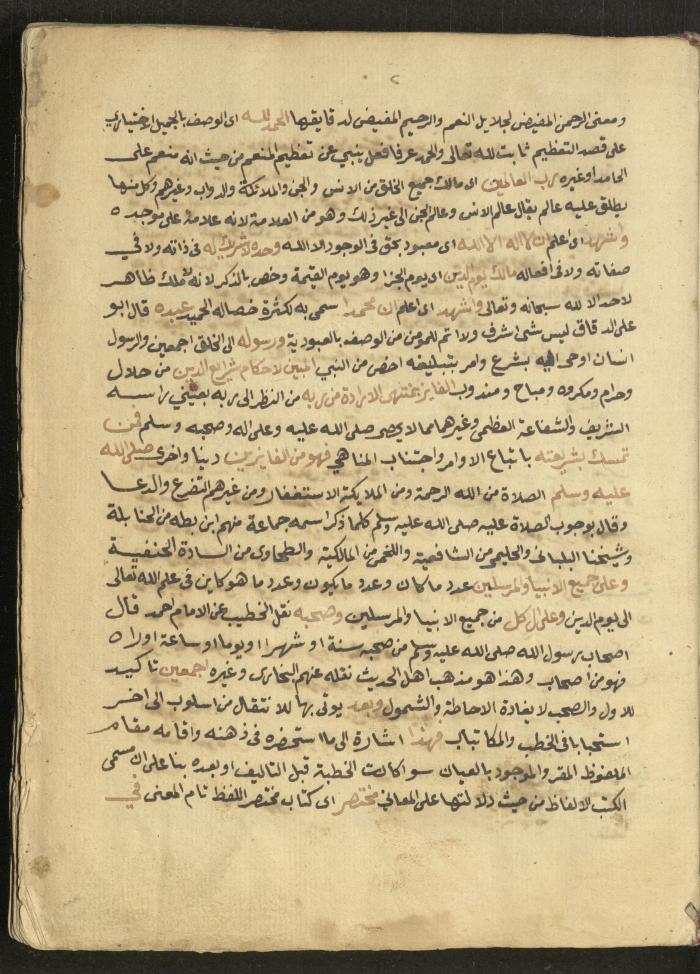 ٢
ومعنى الرحمن المفيض لجلايل النعم والرحيم المفيض لدقايقها الحمد لله اى الوصف بالجميل الاختيارى
على قصد التعظيم ثابت لله تعالى والحمد عرفا فعل ينبي عن تعظيم المنعم من حيث انه منعم على
الحامد او غيره رب العالمين اى مالك جميع الخلق من الانس والجن والملائكة والدواب وغيرهم وكل منها
يطلق عليه عالم يقال عالم الانس وعالم الجن الى غير ذلك وهو من العلامة لانه علامة على موجده
واشهد اى اعلم ان لا اله الا الله اى معبود بحق فى الوجود الا الله وحده لا شريك له فى ذاته ولا فى
صفاته ولا فى افعاله مالك يوم الدين اى يوم الجزا وهو يوم القيمة وخص بالذكر لانه لا ملك ظاهر
لاحد الا لله سبحانه وتعالى واشهد اى اعلم ان محمدا سمى به لكثرة خصاله الحميدة عبده قال ابو
على الدقاق ليس شى اشرف ولا اتم للمومن من الوصف بالعبودية ورسوله الى الخلق اجمعين والرسول
انسان اوحى اليه بشرع وامر بتبليغه اخص من النبي المبين لاحكام شرايع الدين من حلال
وحرام ومكروه ومباح ومندوب الفايز بمنتهى الارادة من ربه من النظر الى ربه بعيني راسه
الشريف والشفاعة العظمى وغيرهما مما لا يحصى صلى الله عليه وعلى اله وصحبه وسلم فمن
تمسك بشريعته باتباع الاوامر واجتناب المناهي فهو من الفايزين دينا واخرى صلى الله
عليه وسلم الصلاة من الله الرحمة ومن الملايكة الاستغفار ومن غيرهم التضرع والدعا
وقال بوجوب الصلاة عليه صلى الله عليه وسلم كلما ذكر اسمه جماعة منهم ابن بطه من الحنابلة
وشيخنا البلبانى والحليمى من الشافعية واللخمى من المالكية والطحاوى من السادة الحنفية
وعلى جميع الانبيا والمرسلين عدد ما كان وعدد ما يكون وعدد ما هو كاين فى علم الله تعالى
الى يوم الدين وعلى ال كل من جميع الانبيا والمرسلين وصحبه نقل الخطيب عن الامام احمد قال
اصحاب رسول الله صلى الله عليه وسلم من صحبه سنة او شهرا او يوما او ساعة او راه
فهو من اصحابه وهذا هو مذهب اهل الحديث نقله عنهم البخارى وغيره اجمعين تاكيد
للاول والصحب لافادة الاحاطة والشمول وبعد يوتى بها للانتقال من اسلوب الى اخر
استحبابا فى الخطب والمكاتبات فهذا اشارة الى ما استحضره فى ذهنه واقامه مقام
الملفوظ المقرو الموجود بالعيان سوا كانت الخطبة قبل التاليف او بعده بنا على ان مسمى
الكتب الالفاظ من حيث دلالتها على المعانى مختصر اى كتاب مختصر اللفظ تام المعنى فى